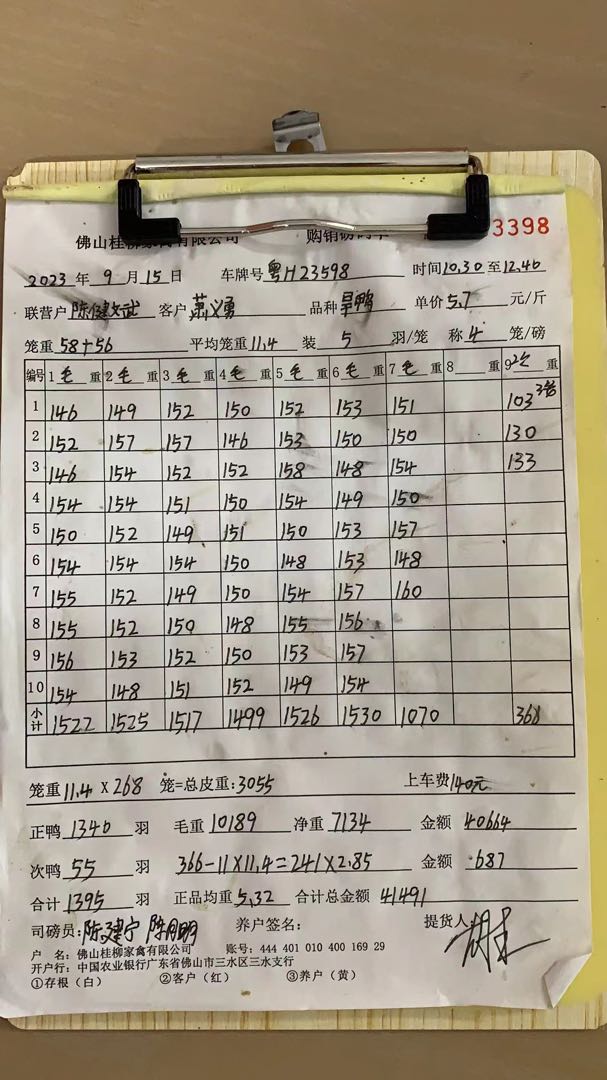 佛山桂柳家禽有限公司 购销磅码单 3398
2023 年 9 月 15 日 车牌号 粤H23598 时间 10.30 至 12.40
联营户 陈健文武 客户 萧义勇 品种 旱鸭 单价 5.7 元/斤
笼重 58+56 平均笼重 11.4 装 5 羽/笼 称 4 笼/磅
编号 1 毛 重 2 毛 重 3 毛 重 4 毛 重 5 毛 重 6 毛 重 7 毛 重 8 重 9 次 重
1 146 149 152 150 152 153 151 103 3笼
2 152 157 157 146 153 150 150 130
3 146 154 152 152 158 148 154 133
4 154 154 151 150 154 149 150
5 150 152 149 151 150 153 157
6 154 154 154 150 148 153 148
7 155 152 149 150 154 157 160
8 155 152 150 148 155 156
9 156 153 152 150 153 157
10 154 148 151 152 149 154
小计 1522 1525 1517 1499 1526 1530 1070 366
笼重 11.4 X 268 笼=总皮重: 3055 上车费 140元
正鸭 1340 羽 毛重 10189 净重 7134 金额 40664
次鸭 55 羽 366-11X11.4=241X2.85 金额 687
合计 1395 羽 正品均重 5.32 合计总金额 41491
司磅员: 陈建宁 陈月明 养户签名: 提货人:
户 名: 佛山桂柳家禽有限公司 账号: 444 401 010 400 169 29
开户行: 中国农业银行广东省佛山市三水区三水支行
①存根(白) ②客户(红) ③养户(黄)